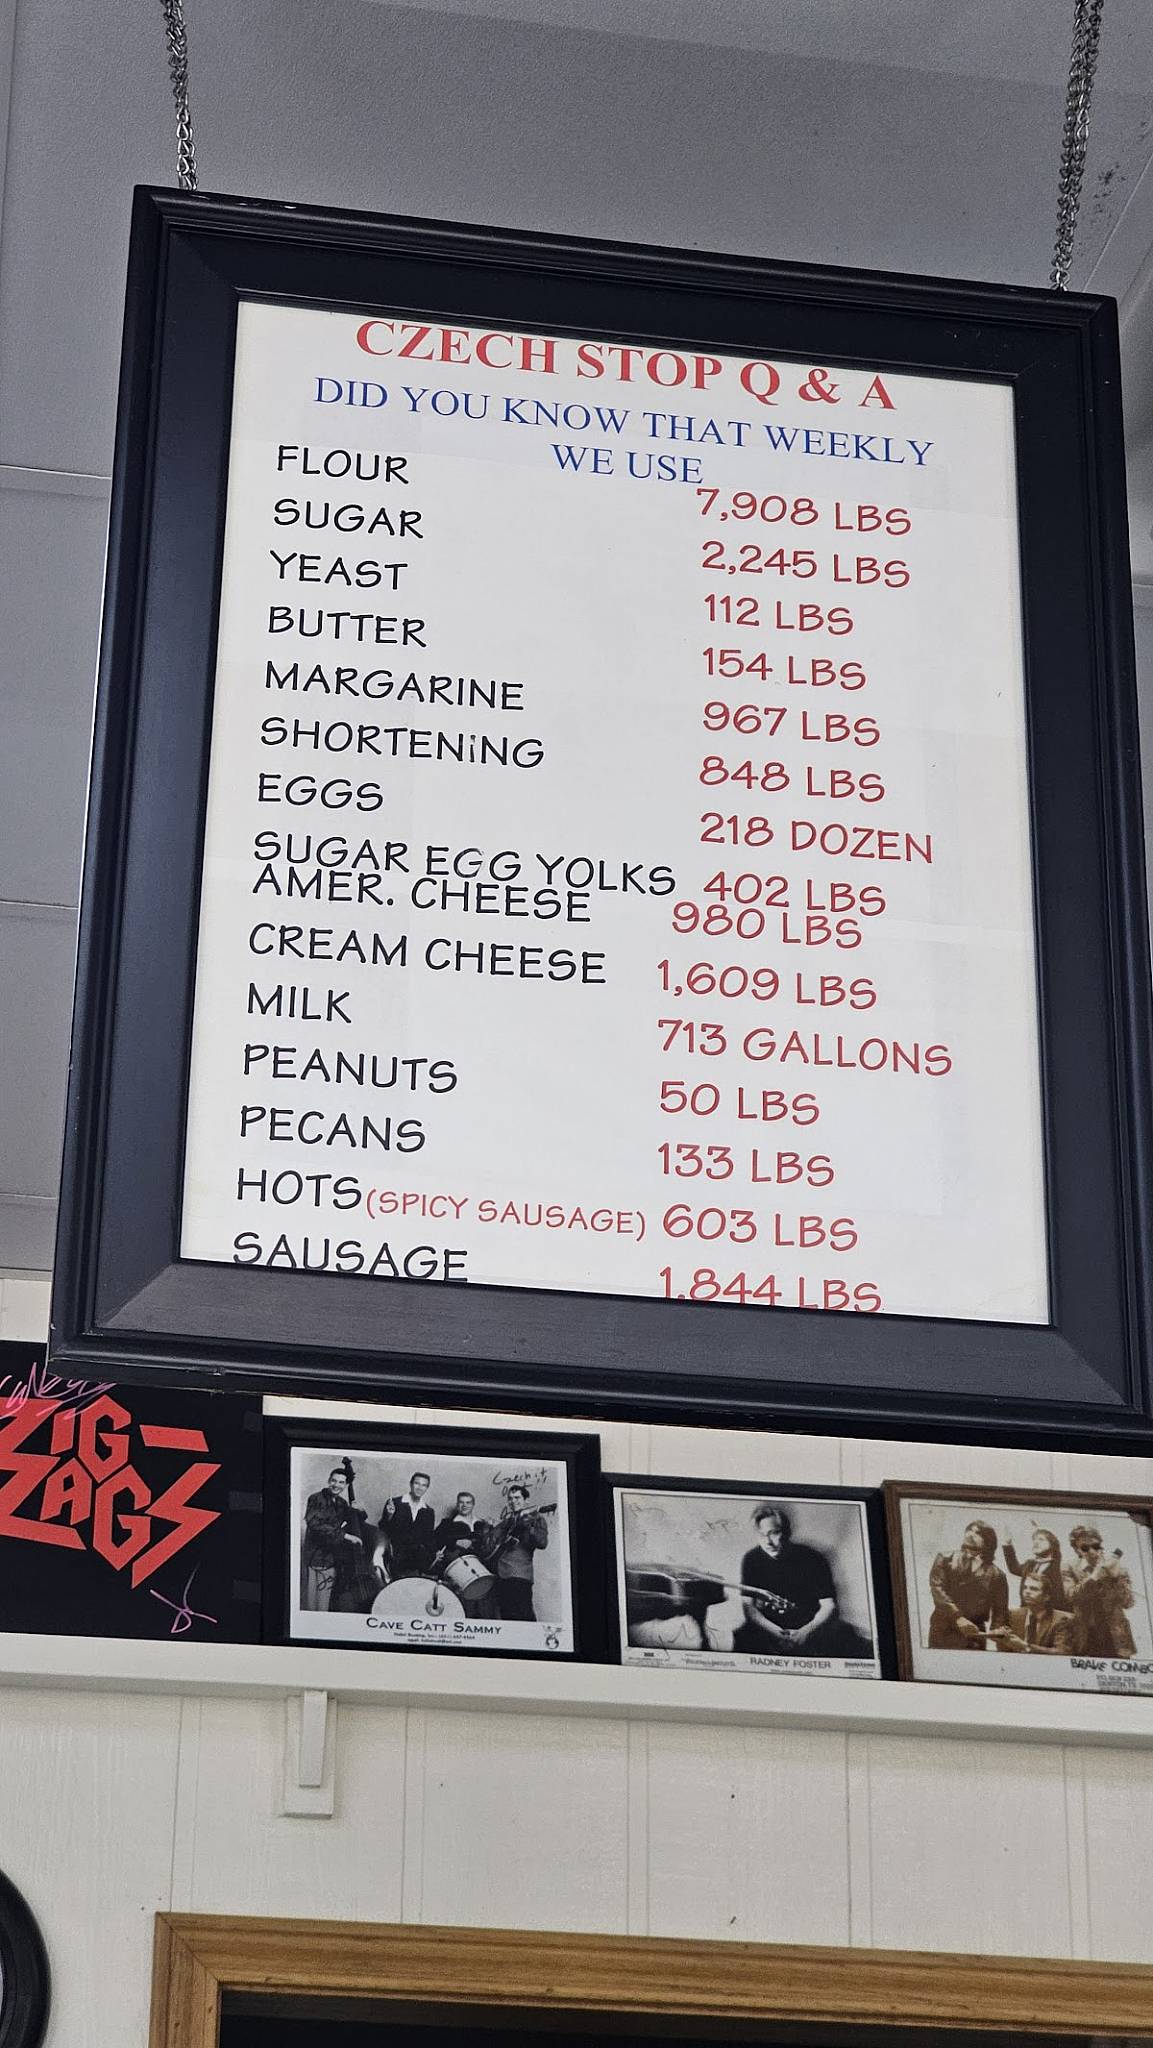 CZECH STOP Q & A
DID YOU KNOW THAT WEEKLY
WE USE
FLOUR 7,908 LBS
SUGAR 2,245 LBS
YEAST 112 LBS
BUTTER 154 LBS
MARGARINE 967 LBS
SHORTENiNG 848 LBS
EGGS 218 DOZEN
SUGAR EGG YOLKS 402 LBS
AMER. CHEESE 980 LBS
CREAM CHEESE 1,609 LBS
MILK 713 GALLONS
PEANUTS 50 LBS
PECANS 133 LBS
HOTS(SPICY SAUSAGE) 603 LBS
SAUSAGE 1,844 LBS
ZIG-
ZAGS
CAVE CATT SAMMY
RADNEY FOSTER
BRAVE COMBO